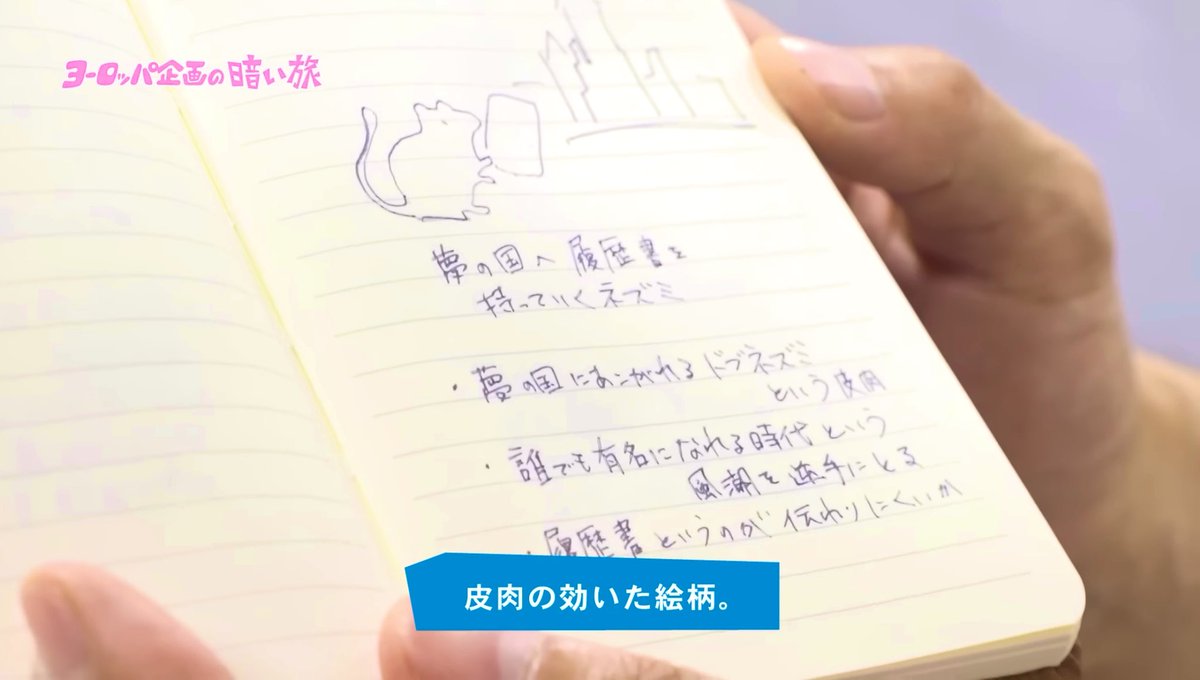 ヨーロッパ企画の暗い旅
夢の国へ履歴書を
持っていくネズミ
・夢の国にあこがれるドブネズミ
という皮肉
・誰でも有名になれる時代という
風潮を逆手にとる
・履歴書というのが伝わりにくいか
皮肉の効いた絵柄。